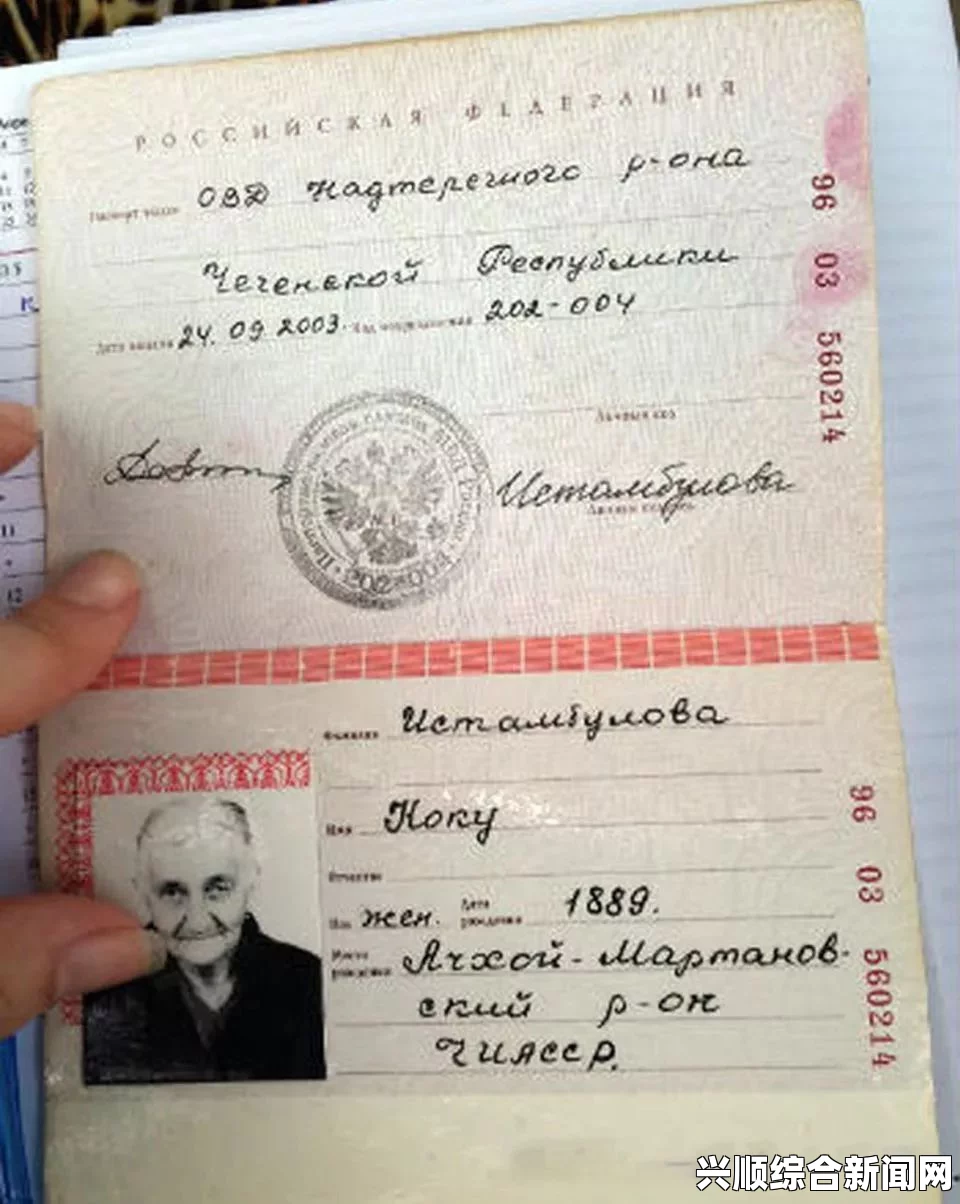 РОССИЙСКАЯ ФЕДЕРАЦИЯ
Паспорт выдан ОВД Надтеречного р-она
Чеченской Республики
Дата выдачи 24.09 2003. Код подразделения 202-004
Личный код
Истамбулова
Личная подпись
202-004
96 03 560214
Фамилия Истамбулова
Имя Коку
Отчество
Пол жен. Дата рождения 1889.
Место рождения Ачхой-Мартанов-
ский р-он
ЧИАССР.
96 03 560214
兴顺综合新闻网